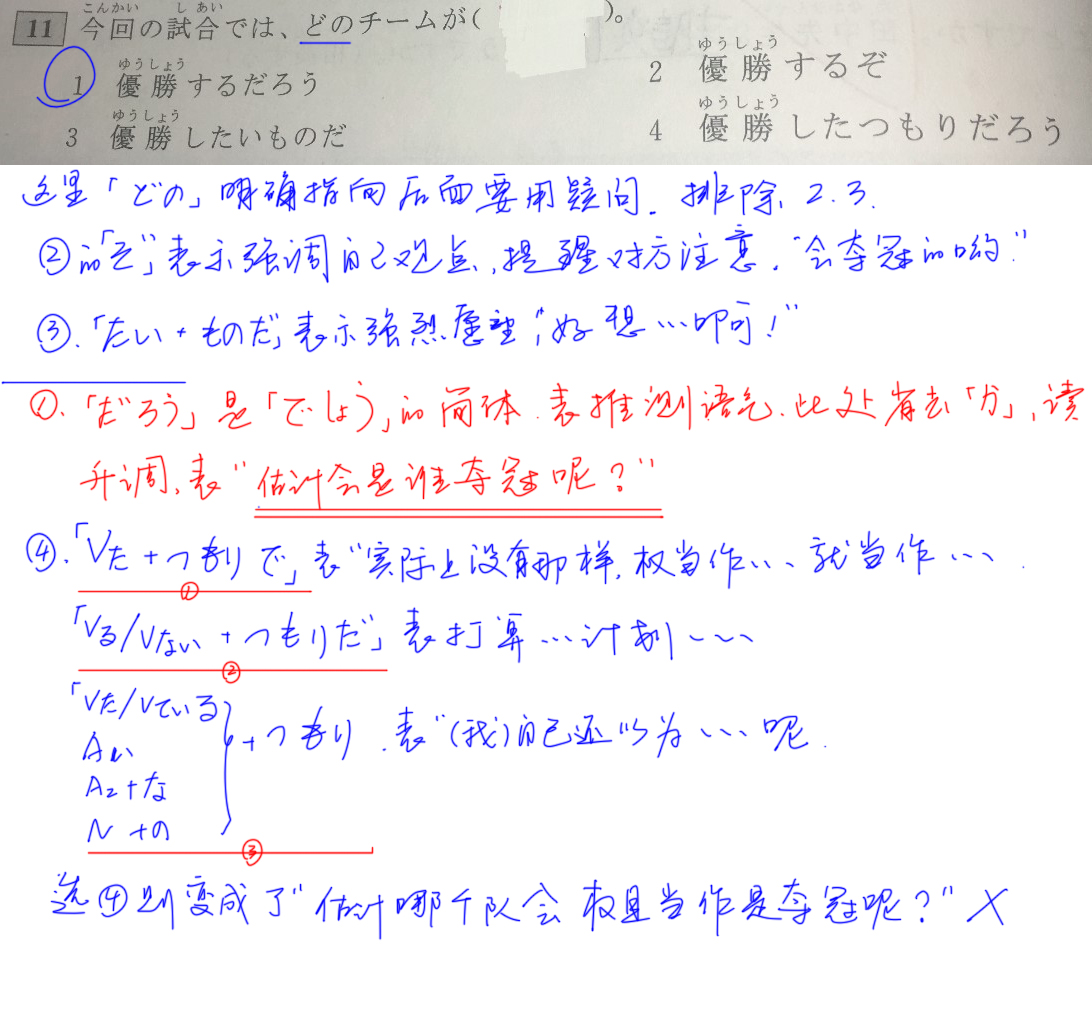 11 今回の試合では、どのチームが( )。
1 優勝するだろう
2 優勝するぞ
3 優勝したいものだ
4 優勝したつもりだろう
这里「どの」明确指向后面要用疑问. 排除 2.3.
②的「ぞ」表示强调自己观点,提醒对方注意."会夺冠的哟"
③.「たい+ものだ」表示强烈愿望,"好想…即可!"
①.「だろう」是「でしょう」的简体.表推测语气.此处省去「か」,读
升调,表"估计会是谁夺冠呢?"
④.「Vた+つもりで」表"实际上没有那样,权当作… 就当作…
①
「Vる/Vない+つもりだ」表打算…计划…
②
「Vた/Vている
Aい
A₂+な
N+の
+つもり.表"(我)自己还以为…呢.
③
选④则变成了"估计哪个队会权且当作是夺冠呢?" ×